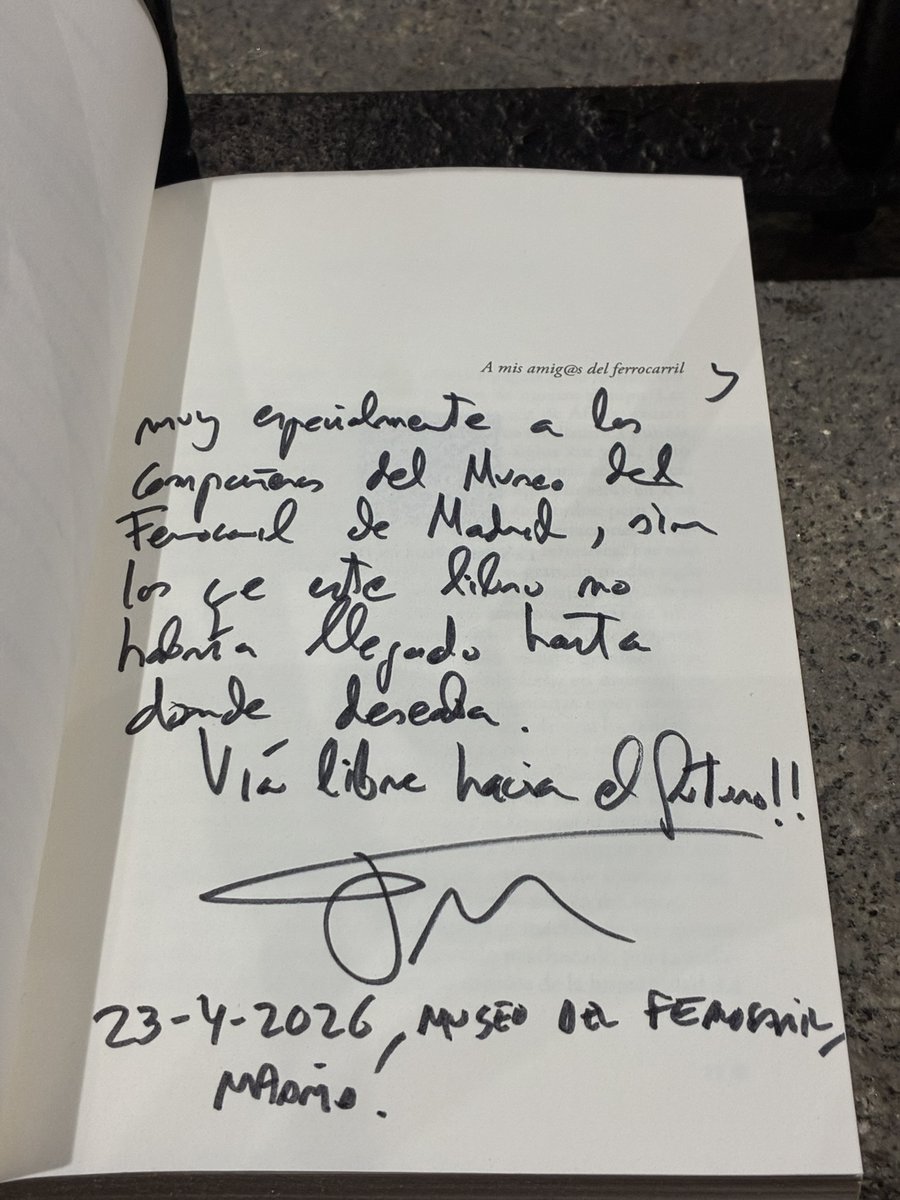 A mis amig@s del ferrocarril y
muy especialmente a los
compañeros del Museo del
Ferrocarril de Madrid, sin
los que este libro no
habría llegado hasta
donde deseaba.
Vía libre hacia el futuro!!
23-4-2026, MUSEO DEL FERROCARRIL,
MADRID.